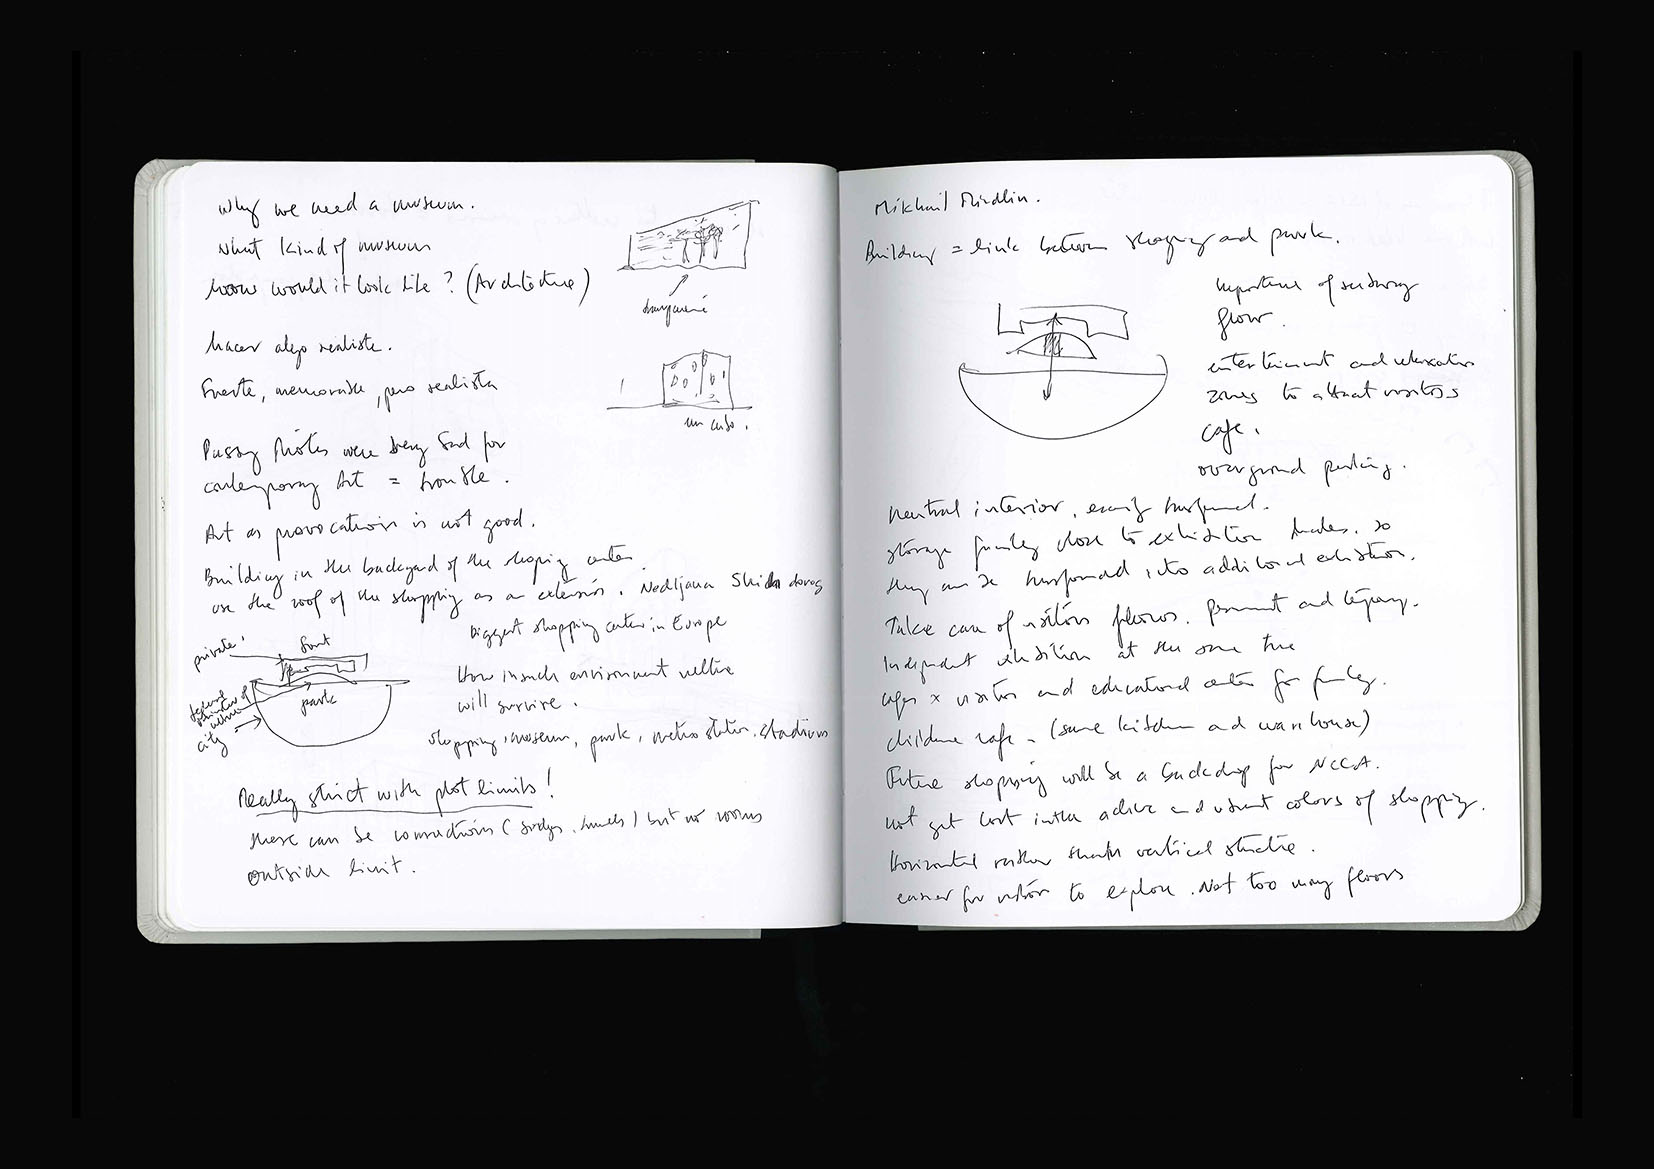 Why we need a museum.
What kind of museum
how would it look like? (Architecture)
hacer algo realiste.
Fuerte, memorable, pero realista
transparencia
un cubo.
Pussy Riots were very bad for
contemporary Art = trouble.
Art as provocation is not good.
Building in the backyard of the shoping center.
use the roof of the shopping as an extension.
Biggest shopping center in Europe
private!
front
park
city
How in such environment culture
will survive.
shopping, museum, park, metro station, stadium
Really strict with plot limits!
there can be connections (bridges, tunnels) but no rooms
outside limit.
Mikhail Mindlin.
Building = link between shoping and park.
importance of subway
flow.
entertainment and relaxation
zones to attract visitors
cafe.
overground parking.
Neutral interior, easily transformed.
storage facility close to exhibition halls. so
they can be transformed into additional exhibition.
Take care of visitors flows. permanent and temporary.
Independent exhibition at the same time
visitor and educational center for family.
children cafe - (same kitchen and warehouse)
Future shopping will be a backdrop for NCCA.
not get lost in the active and vibrant colors of shopping.
Horizontal rather than vertical structure.
easier for visitor to explore. Not too many floors